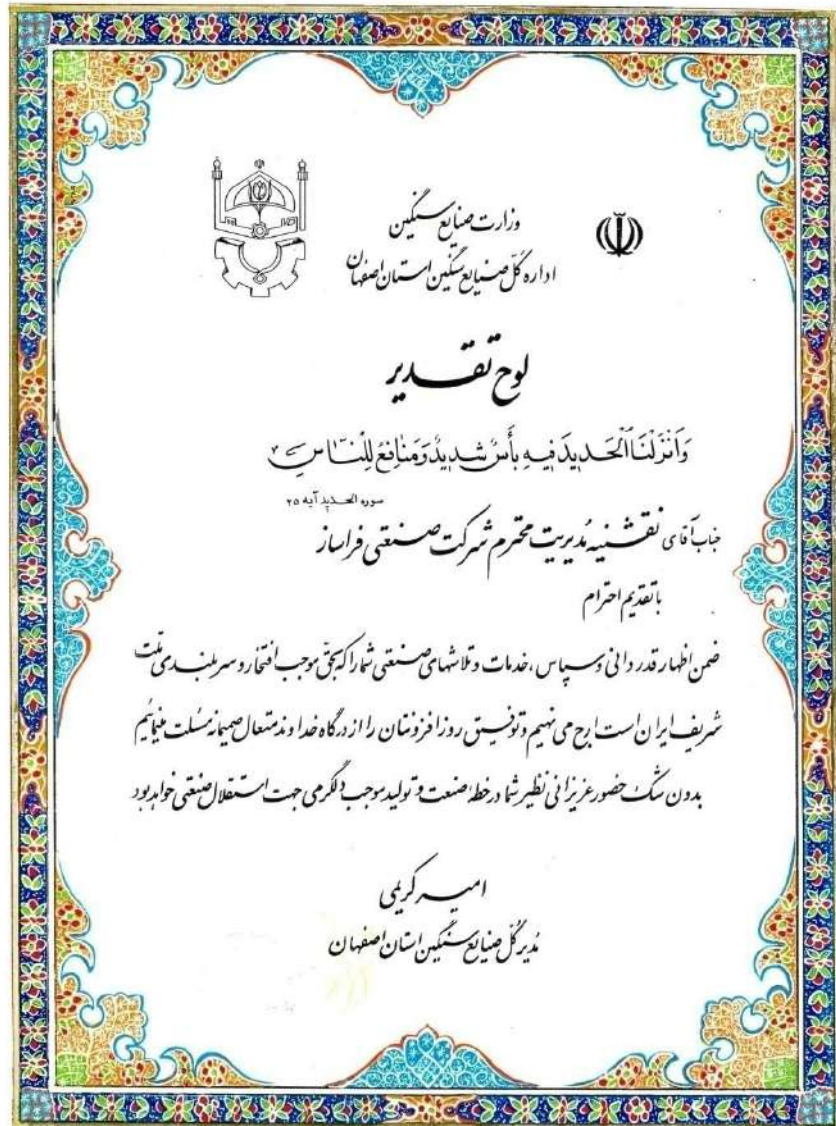 وزارت صنایع سنگین
اداره کل صنایع سنگین استان اصفهان
لوح تقدیر
وَأَنْزَلْنَا الْحَدِيدَ فِيهِ بَأْسٌ شَدِيدٌ وَمَنَافِعُ لِلنَّاسِ
سوره الحدید آیه ۲۵
جناب آقای نقشینه مدیریت محترم شرکت صنعتی فراساز
با تقدیم احترام
ضمن اظهار قدردانی و سپاس ، خدمات و تلاشهای صنعتی شما را که بحق موجب افتخار و سربلندی ملت
شریف ایران است ارج می نهیم و توفیق روز افزونتان را از درگاه خداوند متعال صمیمانه مسئلت مینمائیم
بدون شک حضور عزیزانی نظیر شما در خطه صنعت و تولید موجب دلگرمی جهت استقلال صنعتی خواهد بود
امیر کریمی
مدیر کل صنایع سنگین استان اصفهان